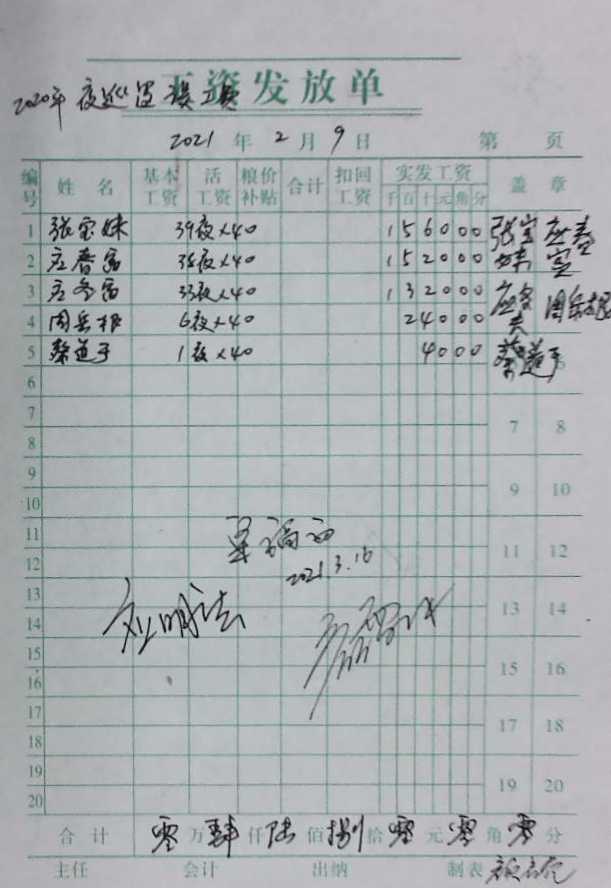 工资发放单
2020年夜巡逻误工
2021年2月9日 第 页
编号 姓名 基本工资 活工资 粮价补贴 合计 扣回工资 实发工资 盖章
千百十元角分
1 张宝妹 39夜×40 156000 张宝妹
2 庄春富 38夜×40 152000
3 庄冬富 33夜×40 132000
4 周岳根 6夜×40 24000 周岳根
5 蔡道于 1夜×40 4000 蔡道于
6
7 7 8
8
9 9 10
10
11 11 12
12 2021.3.16
13 13 14
14 刘明法
15 15 16
16
17 17 18
18
19 19 20
20
合计 零万肆仟陆佰捌拾零元零角零分
主任 会计 出纳 制表